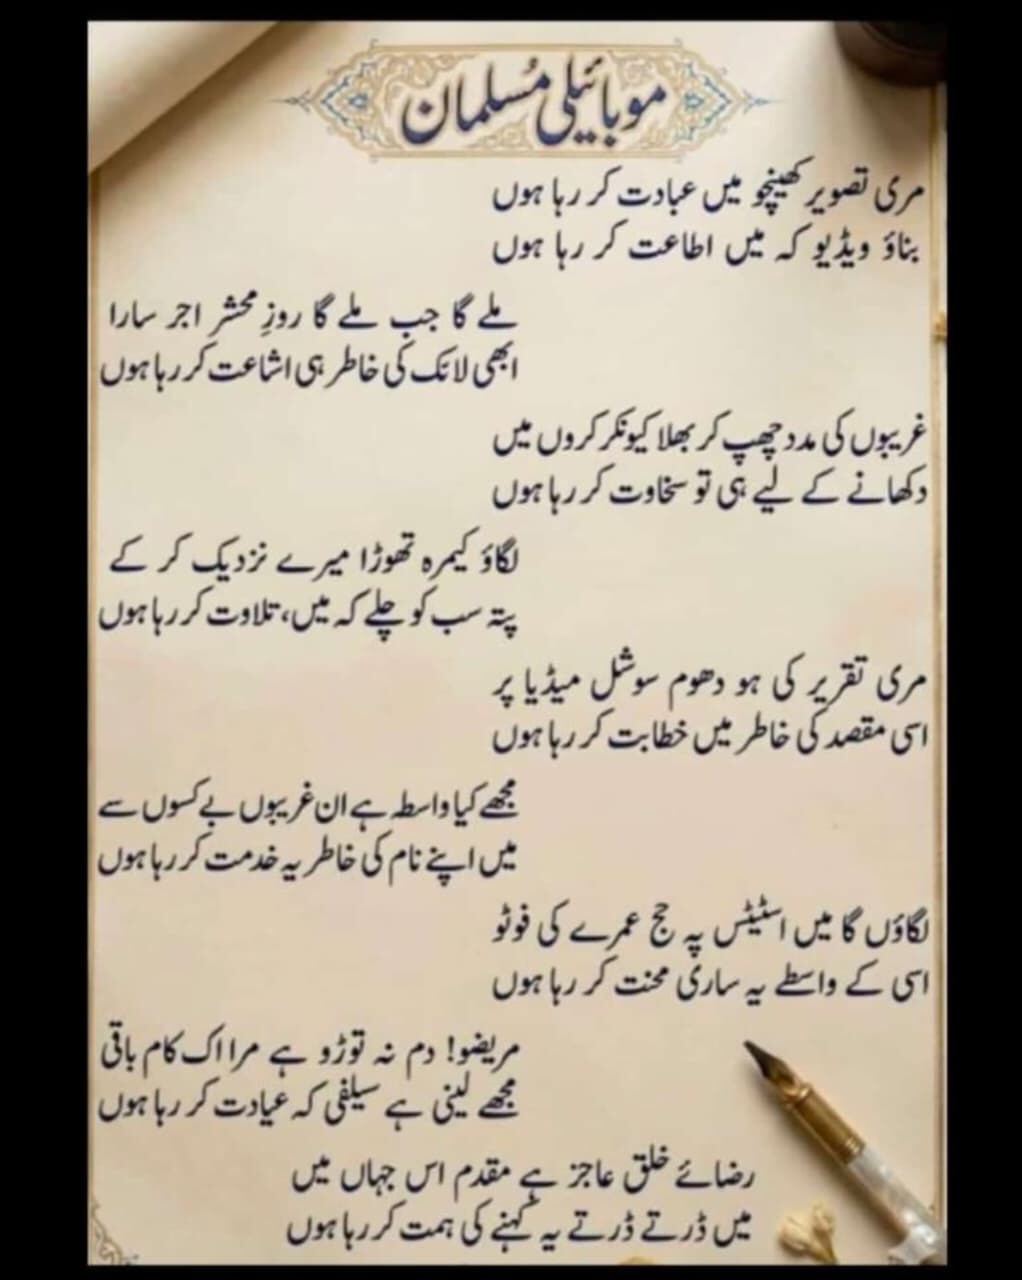 موبائیلی مُسلمان
مری تصویر کھینچو میں عبادت کر رہا ہوں
بناؤ ویڈیو کہ میں اطاعت کر رہا ہوں
ملے گا جب ملے گا روزِ محشر اجر سارا
ابھی لائک کی خاطر ہی اشاعت کر رہا ہوں
غریبوں کی مدد چھپ کر بھلا کیونکر کروں میں
دکھانے کے لیے ہی تو سخاوت کر رہا ہوں
لگاؤ کیمرہ تھوڑا میرے نزدیک کر کے
پتہ سب کو چلے کہ میں، تلاوت کر رہا ہوں
مری تقریر کی ہو دھوم سوشل میڈیا پر
اسی مقصد کی خاطر میں خطابت کر رہا ہوں
مجھے کیا واسطہ ہے ان غریبوں بے کسوں سے
میں اپنے نام کی خاطر یہ خدمت کر رہا ہوں
لگاؤں گا میں اسٹیٹس پہ حج عمرے کی فوٹو
اسی کے واسطے یہ ساری محنت کر رہا ہوں
مریضو! دم نہ توڑو ہے مرا اک کام باقی
مجھے لینی ہے سیلفی کہ عیادت کر رہا ہوں
رضائے خلق عاجز ہے مقدم اس جہاں میں
میں ڈرتے ڈرتے یہ کہنے کی ہمت کر رہا ہوں